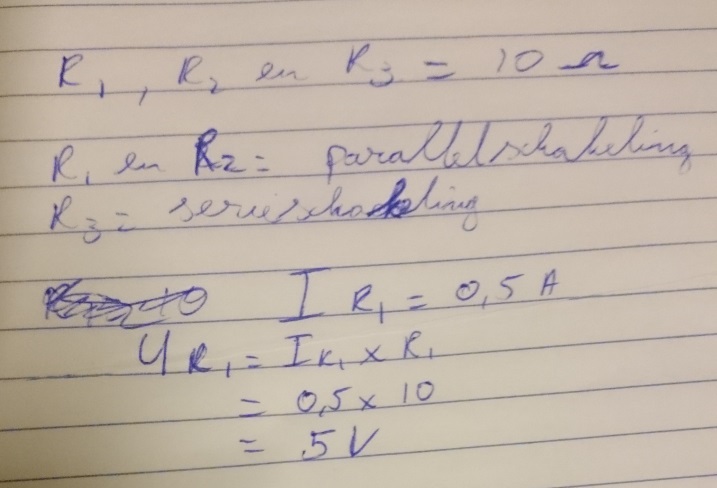 R₁, R₂ en R₃ = 10 Ω
R₁ en R₂ = parallelschakeling
R₃ = serieschakeling
I R₁ = 0,5 A
U R₁ = I R₁ x R₁
= 0,5 x 10
= 5 V